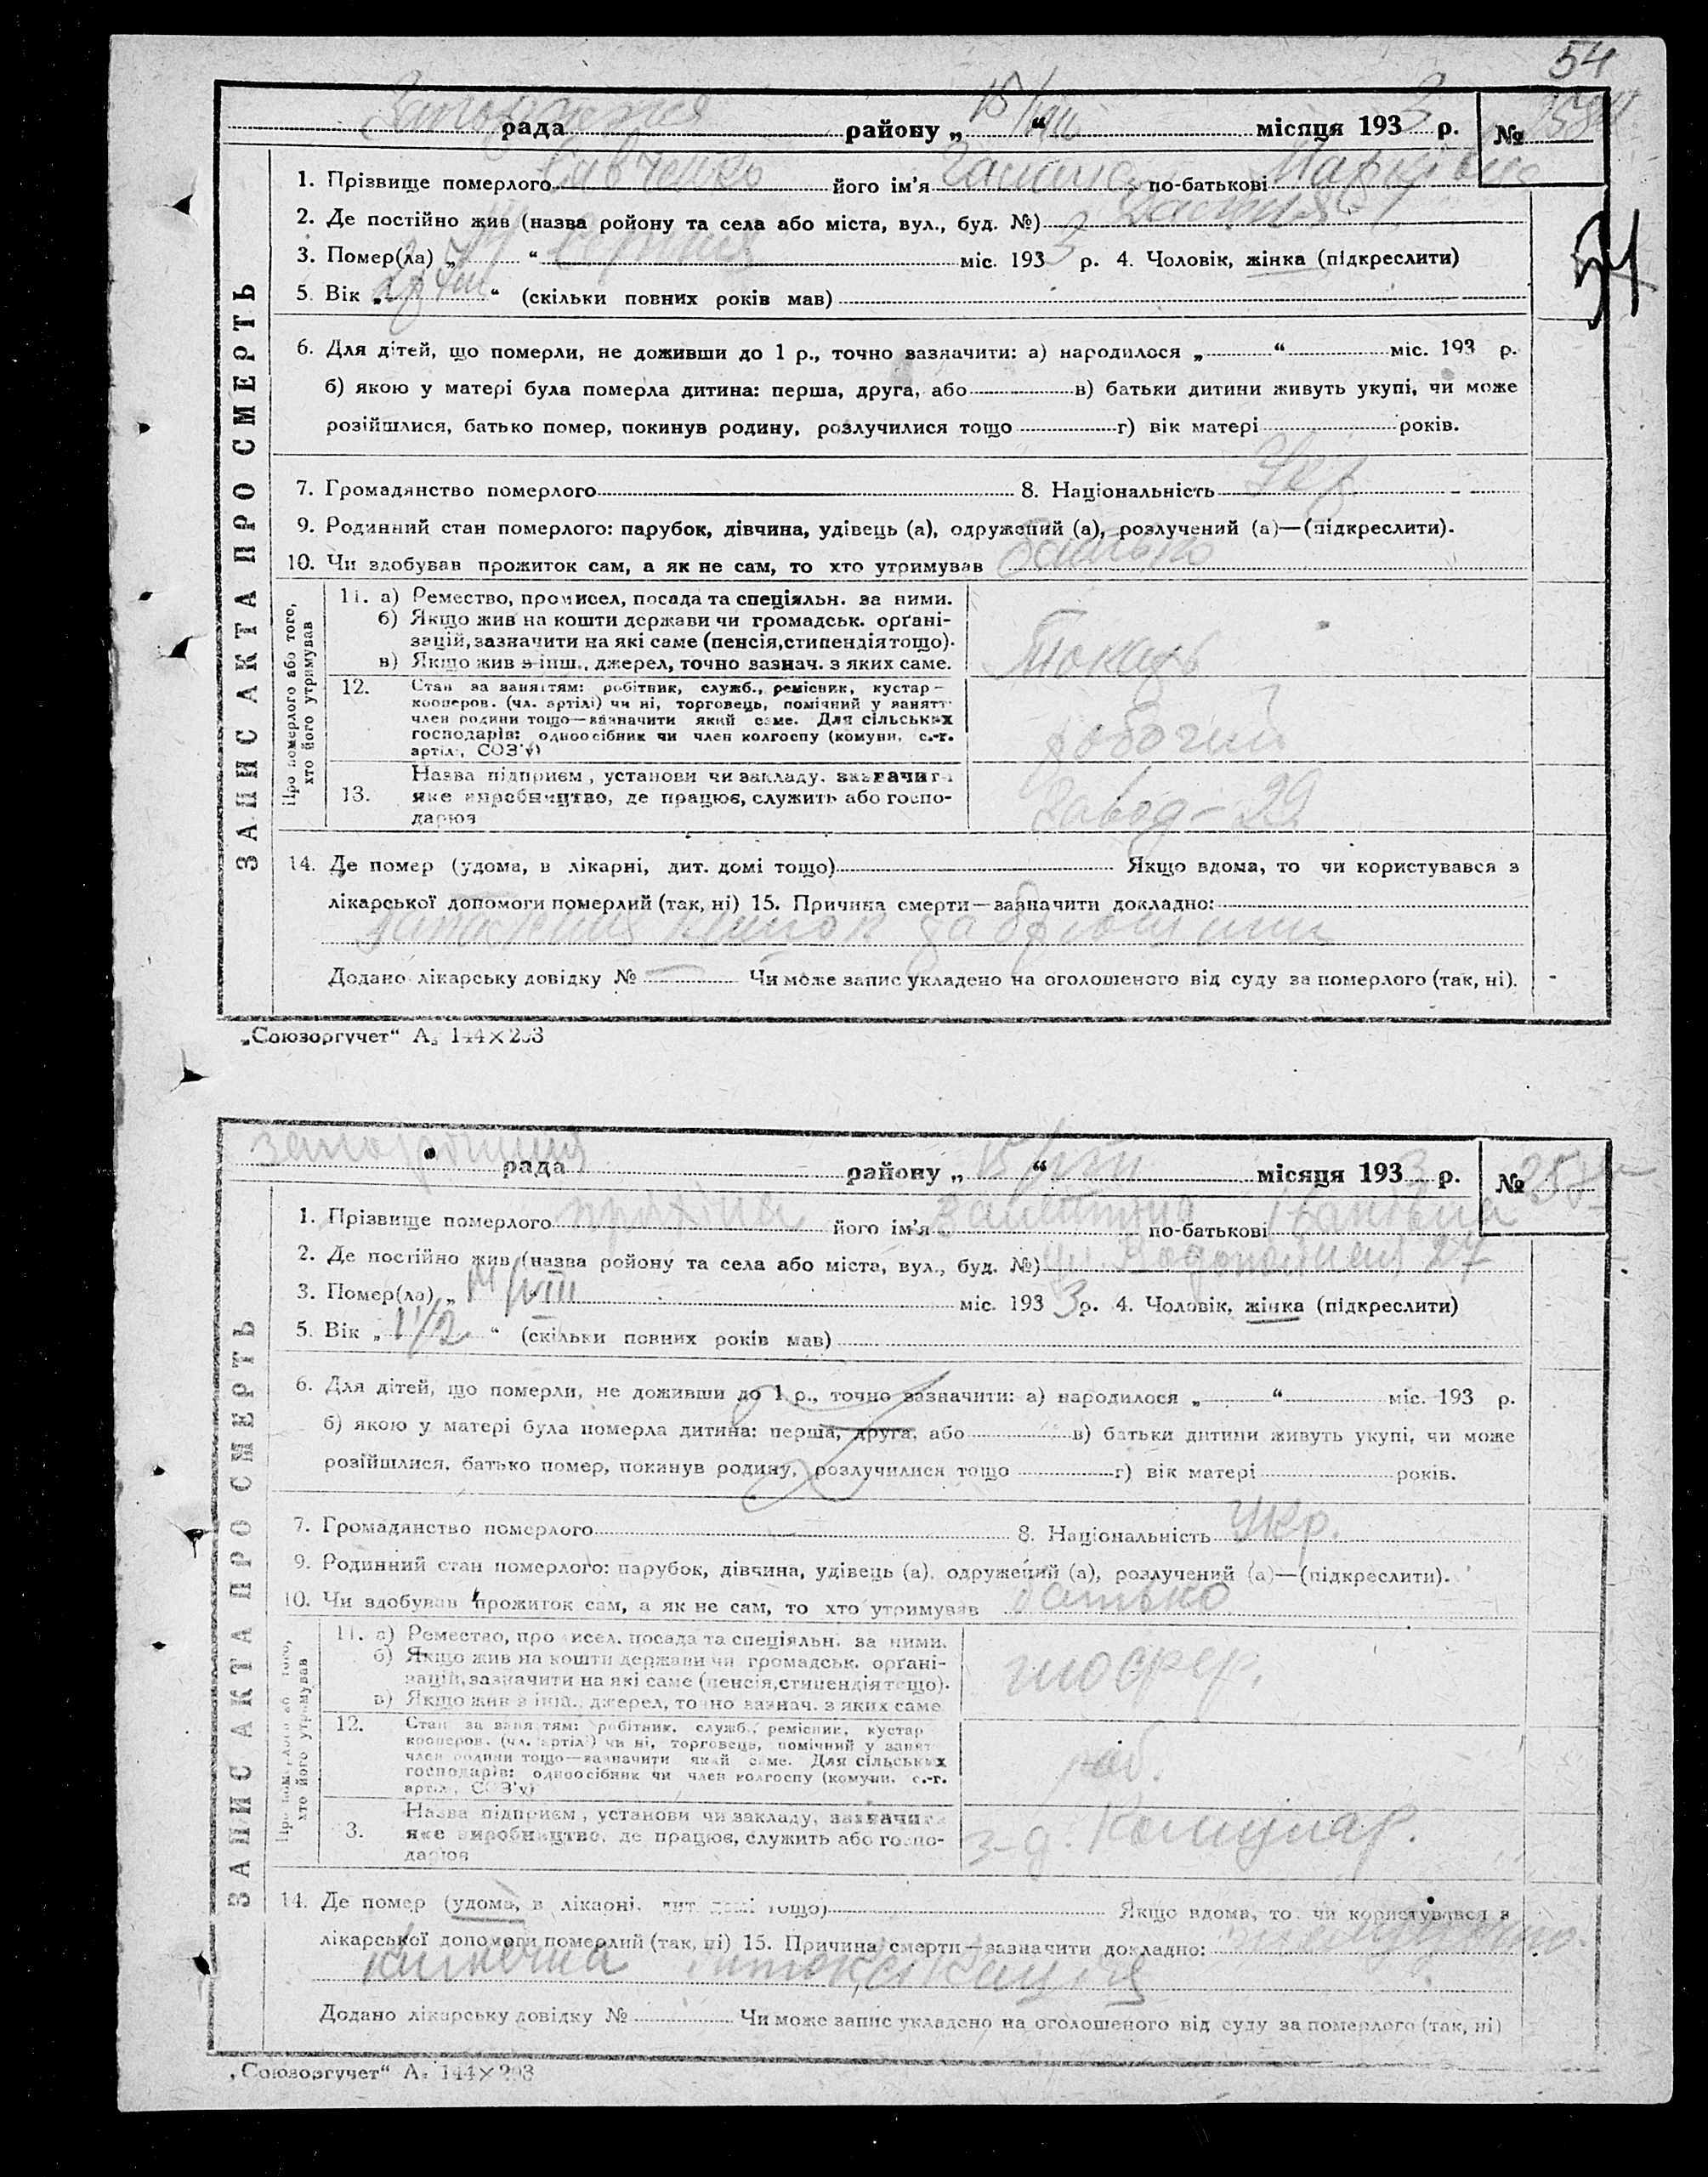 54
Запоріжжя рада району „15/VIII“ місяця 1933 р. №
1. Прізвище померлого Савченко його ім’я Галина по-батькові Марківна
2. Де постійно жив (назва ройону та села або міста, вул., буд. №)
3. Помер(ла) „ “ серпня міс. 1933 р. 4. Чоловік, жінка (підкреслити)
54
5. Вік „2р “ (скільки повних років мав)
6. Для дітей, що померли, не доживши до 1 р., точно зазначити: а) народилося „ “ міс. 193 р.
б) якою у матері була померла дитина: перша, друга, або в) батьки дитини живуть укупі, чи може
розійшлися, батько помер, покинув родину, розлучилися тощо г) вік матері років.
7. Громадянство померлого 8. Національність Укр
9. Родинний стан померлого: парубок, дівчина, удівець (а), одружений (а), розлучений (а)—(підкреслити).
10. Чи здобував прожиток сам, а як не сам, то хто утримував батько
ЗАПИС АКТА ПРО СМЕРТЬ
Про померлого або того, хто його утримував
11. а) Ремество, промисел, посада та спеціяльн. за ними.
б) Якщо жив на кошти держави чи громадськ. орґані-
зацій, зазначити на які саме (пенсія, стипендія тощо).
в) Якщо жив з інш., джерел, точно зазнач. з яких саме.
Токарь
12. Стан за заняттям: робітник, служб., ремісник, кустар—
кооперов. (чл. артілі) чи ні, торговець, помічний у занятт
член родини тощо—зазначити який саме. Для сільських
господарів: одноосібник чи член колгоспу (комуни, с.-г.
артілі, СОЗ’у)
робочий
13. Назва підприєм, установи чи закладу, зазначити
яке виробництво, де працює, служить або госпо-
дарює
Завод - 29
14. Де помер (удома, в лікарні, дит. домі тощо) Якщо вдома, то чи користувався з
лікарської допомоги померлий (так, ні) 15. Причина смерти—зазначити докладно:
запаленія кишок
Додано лікарську довідку № — Чи може запис укладено на оголошеного від суду за померлого (так, ні).
„Союзоргучет“ А₅ 144×203
Запоріжжя рада району „15/VIII“ місяця 1933 р. №
1. Прізвище померлого його ім’я Валентина по-батькові Іванівна
2. Де постійно жив (назва ройону та села або міста, вул., буд. №) 27
3. Помер(ла) „14/VIII міс. 1933 р. 4. Чоловік, жінка (підкреслити)
5. Вік „1 1/2 “ (скільки повних років мав)
6. Для дітей, що померли, не доживши до 1 р., точно зазначити: а) народилося „ “ міс. 193 р.
б) якою у матері була померла дитина: перша, друга, або в) батьки дитини живуть укупі, чи може
розійшлися, батько помер, покинув родину, розлучилися тощо г) вік матері років.
7. Громадянство померлого 8. Національність Укр.
9. Родинний стан померлого: парубок, дівчина, удівець (а), одружений (а), розлучений (а)—(підкреслити).
10. Чи здобував прожиток сам, а як не сам, то хто утримував батько
ЗАПИС АКТА ПРО СМЕРТЬ
Про померлого або того, хто його утримував
11. а) Ремество, промисел, посада та спеціяльн. за ними.
б) Якщо жив на кошти держави чи громадськ. орґані-
зацій, зазначити на які саме (пенсія, стипендія тощо).
в) Якщо жив з інш., джерел, точно зазнач. з яких саме
шофер.
12. Стан за заняттям: робітник, служб., ремісник, кустар
кооперов. (чл. артілі) чи ні, торговець, помічний у занят
член родини тощо—зазначити який саме. Для сільських
господарів: одноосібник чи член колгоспу (комуни, с.-г.
артілі, СОЗ’у)
роб.
3. Назва підприєм, установи чи закладу, зазначити
яке виробництво, де працює, служить або госпо-
дарює
з-д. Комунар.
14. Де помер (удома, в лікарні, дит. домі тощо) Якщо вдома, то чи користувався з
лікарської допомоги померлий (так, ні) 15. Причина смерти—зазначити докладно:
кишечна интоксикация
Додано лікарську довідку № Чи може запис укладено на оголошеного від суду за померлого (так, ні)
„Союзоргучет“ А₅ 144×203